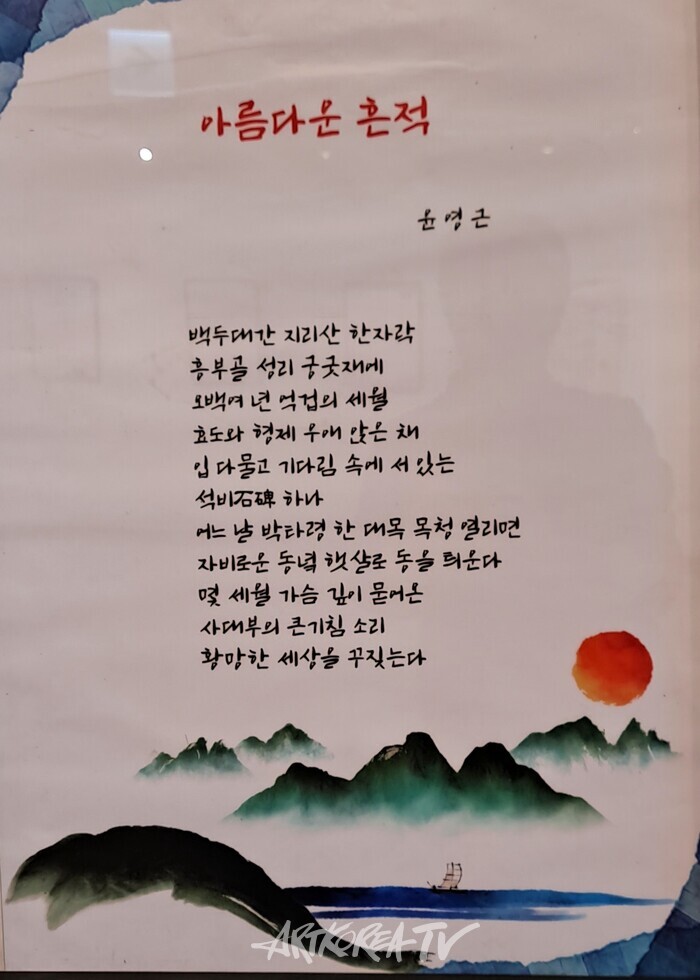 아름다운 흔적
윤영근
백두대간 지리산 한자락
흥부골 성리 궁굿재에
오백여 년 억겁의 세월
효도와 형제 우애 앉은 채
입 다물고 기다림 속에 서 있는
석비石碑 하나
어느 날 박타령 한 대목 목청 열리면
자비로운 동녘 햇살로 동을 틔운다
몇 세월 가슴 깊이 묻어온
사대부의 큰기침 소리
황망한 세상을 꾸짖는다
ARTKOREA TV